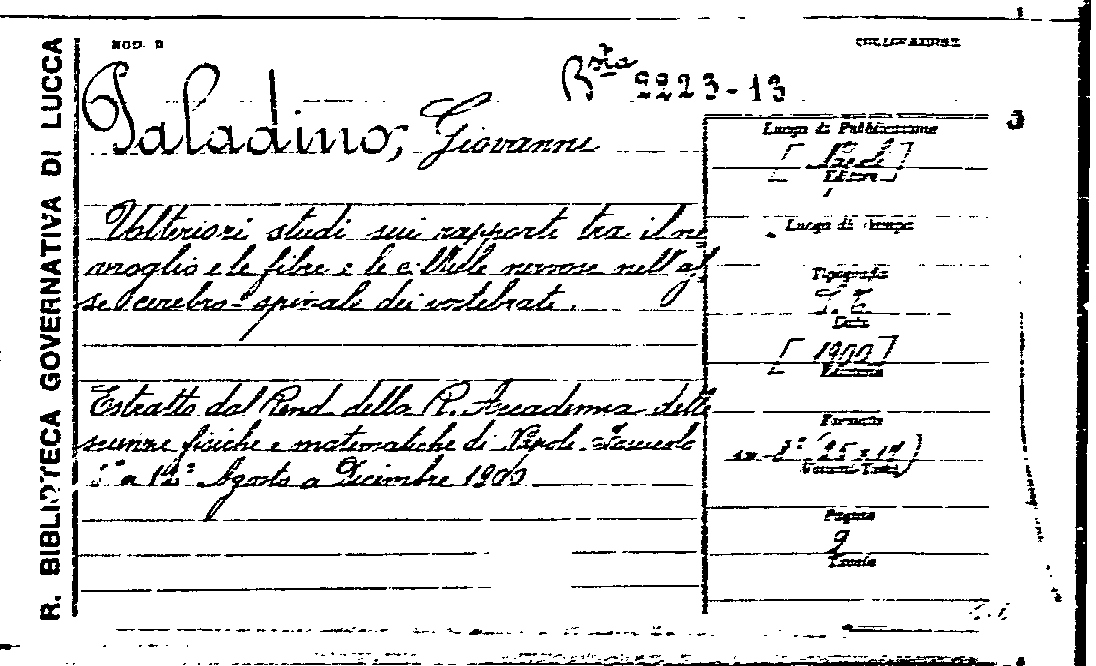 R. BIBLIOTECA GOVERNATIVA DI LUCCA
MOD. B
COLLOCAZIONE
Bsta 2223-13
Paladino, Giovanni
Ulteriori studi sui rapporti tra il ne
vroglio e le fibre e le cellule nervose nell'as
se cerebro-spinale dei vertebrati.
Estratto dal Rend. della R. Accademia delle
scienze fisiche e matematiche di Napoli. Fascicolo
a 12° Agosto a Dicembre 1900
Luogo di Pubblicazione
[Napoli]
Editore
Luogo di stampa
Tipografia
Data
[1900]
Edizione
Formato
in-8° (25x19)
Pagine
9
Tavole